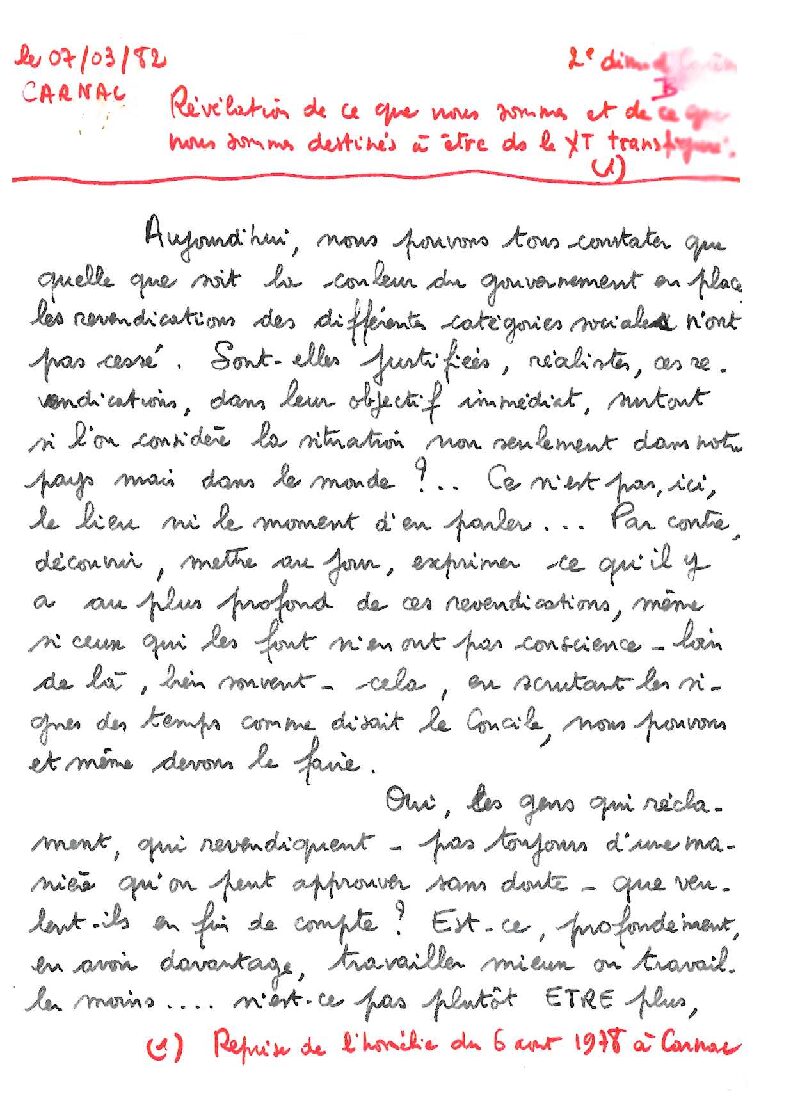 le 07/03/82
2e dim
CARNAC
B
Révélation de ce que nous sommes et de ce que
nous sommes destinés à être ds le XT transfiguré.
(1)
Aujourd'hui, nous pouvons tous constater que
quelle que soit la couleur du gouvernement en place
les revendications des différentes catégories sociales n'ont
pas cessé. Sont-elles justifiées, réalistes, ces re-
vendications, dans leur objectif immédiat, surtout
si l'on considère la situation non seulement dans notre
pays mais dans le monde ?.. Ce n'est pas, ici,
le lieu ni le moment d'en parler... Par contre,
découvrir, mettre au jour, exprimer ce qu'il y
a au plus profond de ces revendications, même
si ceux qui les font n'en ont pas conscience - loin
de là, bien souvent - cela, en scrutant les si-
gnes des temps comme disait le Concile, nous pouvons
et même devons le faire.
Oui, les gens qui récla-
ment, qui revendiquent - pas toujours d'une ma-
nière qu'on peut approuver sans doute - que veu-
lent-ils en fin de compte ? Est-ce, profondément,
en avoir davantage, travailler mieux ou travail-
ler moins.... n'est-ce pas plutôt ETRE plus,
(1) Reprise de l'homélie du 6 aout 1978 à Carnac